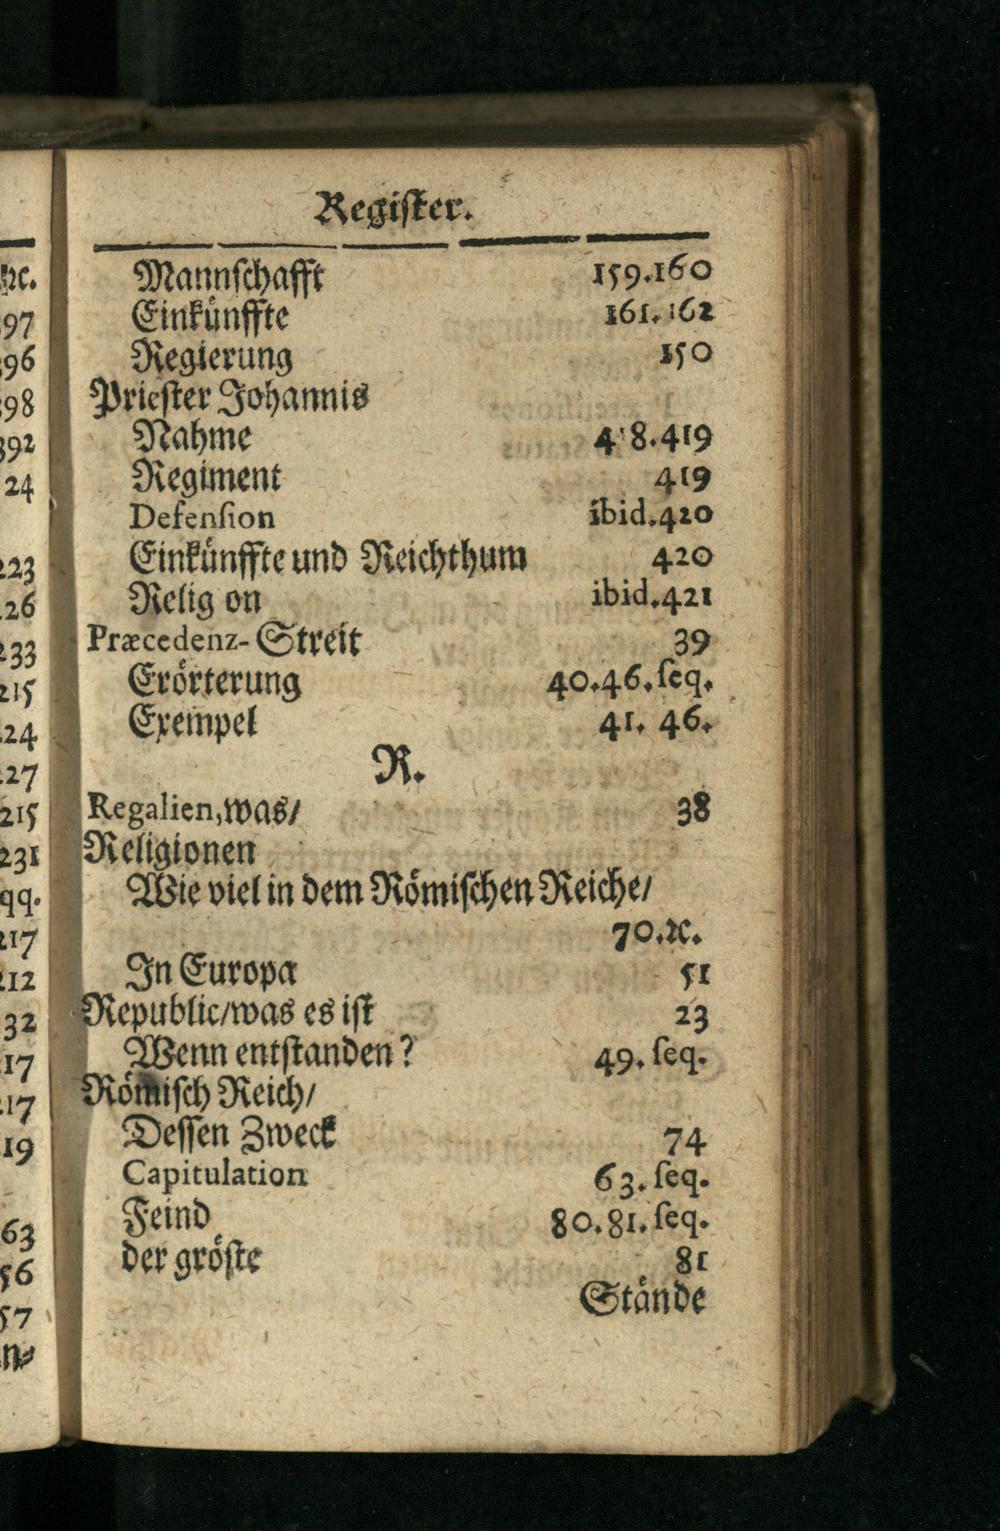 Register.
Mannschafft 159.160
Einkünffte 161.162
Regierung 150
Priester Johannis
Nahme 418.419
Regiment 419
Defension ibid.420
Einkünffte und Reichthum 420
Relig on ibid.421
Præcedenz-Streit 39
Erörterung 40.46.seq.
Exempel 41. 46.
R.
Regalien,was/ 38
Religionen
Wie viel in dem Römischen Reiche/
70.ꝛc.
In Europa 51
Republic/was es ist 23
Wenn entstanden? 49. seq.
Römisch Reich/
Dessen Zweck 74
Capitulation 63. seq.
Feind 80.81. seq.
der gröste 81
Stände